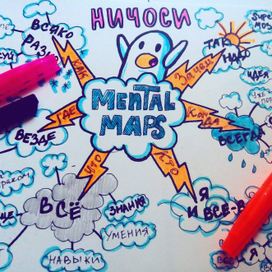 НИЧОСИ
ВСЯКО
РАЗ
КАК
ЗАЧЕМ
ТАК
НАДО
ИДЕЯ
MENTAL
MAPS
ГДЕ
ВЕЗДЕ
КОГДА
ВСЕГДА
ЧТО
КТО
ВСЁ
ЗНАНИЯ
УМЕНИЯ
НАВЫКИ
Я
И ВСЕ-В